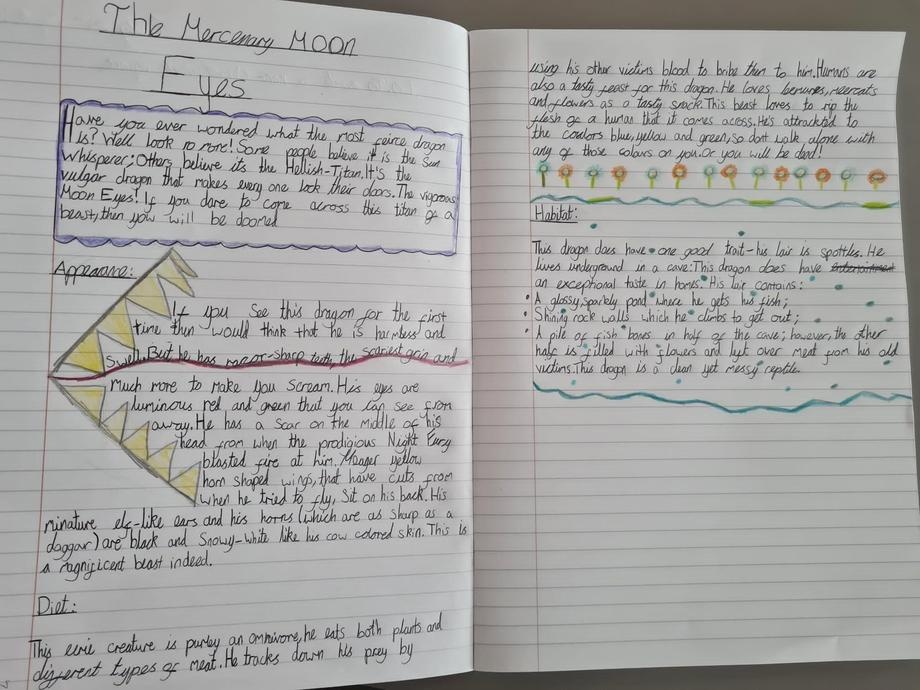 The Mercenary Moon
Eyes
Have you ever wondered what the most feirce dragon
is? Well look no more! Some people believe it is the Sun
Whisperer; Others believe its the Hellish-Titan. It's the
vulgar dragon that makes every one lock their doors. The vigorous
Moon Eyes! If you dare to come across this titan of a
beast, then you will be doomed
Appearance:
If you see this dragon for the first
time then would think that he is harmless and
swell. But he has razor-sharp teeth, the scariest grin and
Much more to make you scream. His eyes are
luminous red and green that you can see from
away. He has a scar on the middle of his
head from when the prodigious Night Fury
blasted fire at him. Meager yellow
horn shaped wings, that have cuts from
when he tried to fly, sit on his back. His
minature elk-like ears and his horns (which are as sharp as a
daggar) are black and snowy-white like his cow colored skin. This is
a magnificent beast indeed.
Diet:
This eirie creature is purley an omnivore, he eats both plants and
different types of meat. He tracks down his prey by
using his other victims blood to bribe them to him. Humans are
also a tasty feast for this dragon. He loves meercats
and flowers as a tasty snack. This beast loves to rip the
flesh of a human that it comes across. He's attrackted to
the coulors blue, yellow and green, so dont walk alone with
any of those colours on you. Or you will be dead!
Habitat:
This dragon does have one good trait-his lair is spottles. He
lives underground in a cave: This dragon does have entertainment
an exceptional taste in homes. His lair contains:
• A glossy, sparkly pond where he gets his fish;
• Shining rock walls which he climbs to get out;
• A pile of fish bones in half of the cave; however, the other
half is filled with flowers and left over meat from his old
victims. This dragon is a clean yet messy reptile.